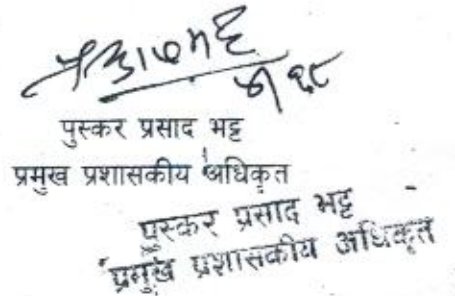 पुस्कर प्रसाद भट्ट
प्रमुख प्रशासकीय अधिकृत
पुस्कर प्रसाद भट्ट
प्रमुख प्रशासकीय अधिकृत